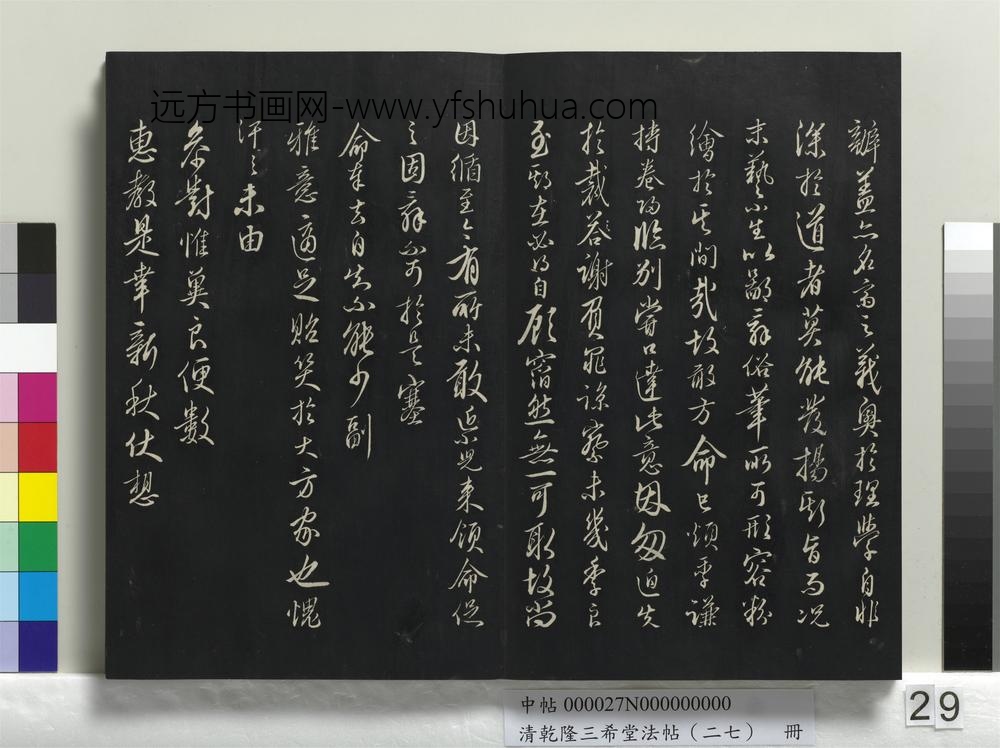 远方书画网-www.yfshuhua.com
辦蓋六名高之義奧於理學自非
深於道者莫能發揚斯旨而況
末藝小生以鄙辭俗筆所可形容粉
繪於其間哉故敢方命已煩季謙
持卷歸臨別嘗口達此意因匆迫失
於裁答謝負罪諒察未幾季良
至斯在必得自顧窅然無一可取故尚
因循至今有所未敢近思兒來領命促
之因辭不可於是塞
命奉去自知不能少副
雅意適足貽笑於大方家也愧
汗々未由
參對惟冀良便數
惠教是幸新秋伏想
中帖 000027N000000000
清乾隆三希堂法帖（二七） 冊
29